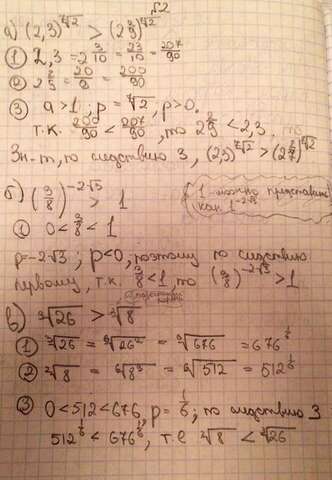 №2
а) (2,3)^√2 > (2 2/9)^√2
① 2,3 = 2 3/10 = 23/10 = 207/90
② 2 2/9 = 20/9 = 200/90
③ a>1; p = √2, p>0.
т.к. 200/90 < 207/90, то 2 2/9 < 2,3.
Зн-т, по следствию 3, (2,3)^√2 > (2 2/9)^√2
б) ( /8)^-2√3 > 1
1 можно представить
как 1^-2√3
① 0 < /8 < 1
p=-2√3; p<0, поэтому по следствию
первому, т.к. /8 < 1, то ( /8)^-2√3 > 1
в) ∛26 > √8
① ∛26 = ⁶√26² = ⁶√676 = 676^1/6
② √8 = ⁶√8³ = ⁶√512 = 512^1/6
③ 0 < 512 < 676, p = 1/6; по следствию 3
512^1/6 < 676^1/6, т.е √8 < ∛26